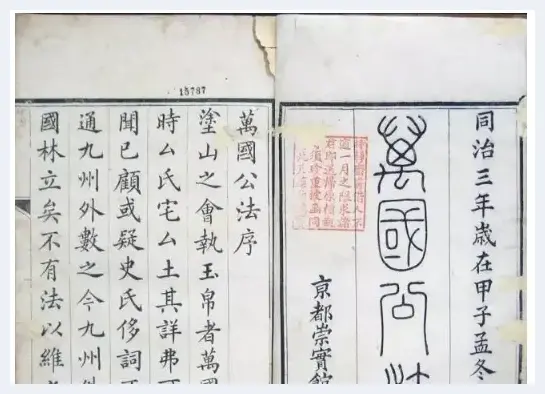 同治三年歳在甲子孟冬
萬國公法
亰都崇實館
15787
萬國公法序
塗山之會執玉帛者萬國
時厶氏宅厶土其詳弗
聞已顧或疑史氏侈詞
通九州外數之今九州外
國林立矣不有法以維